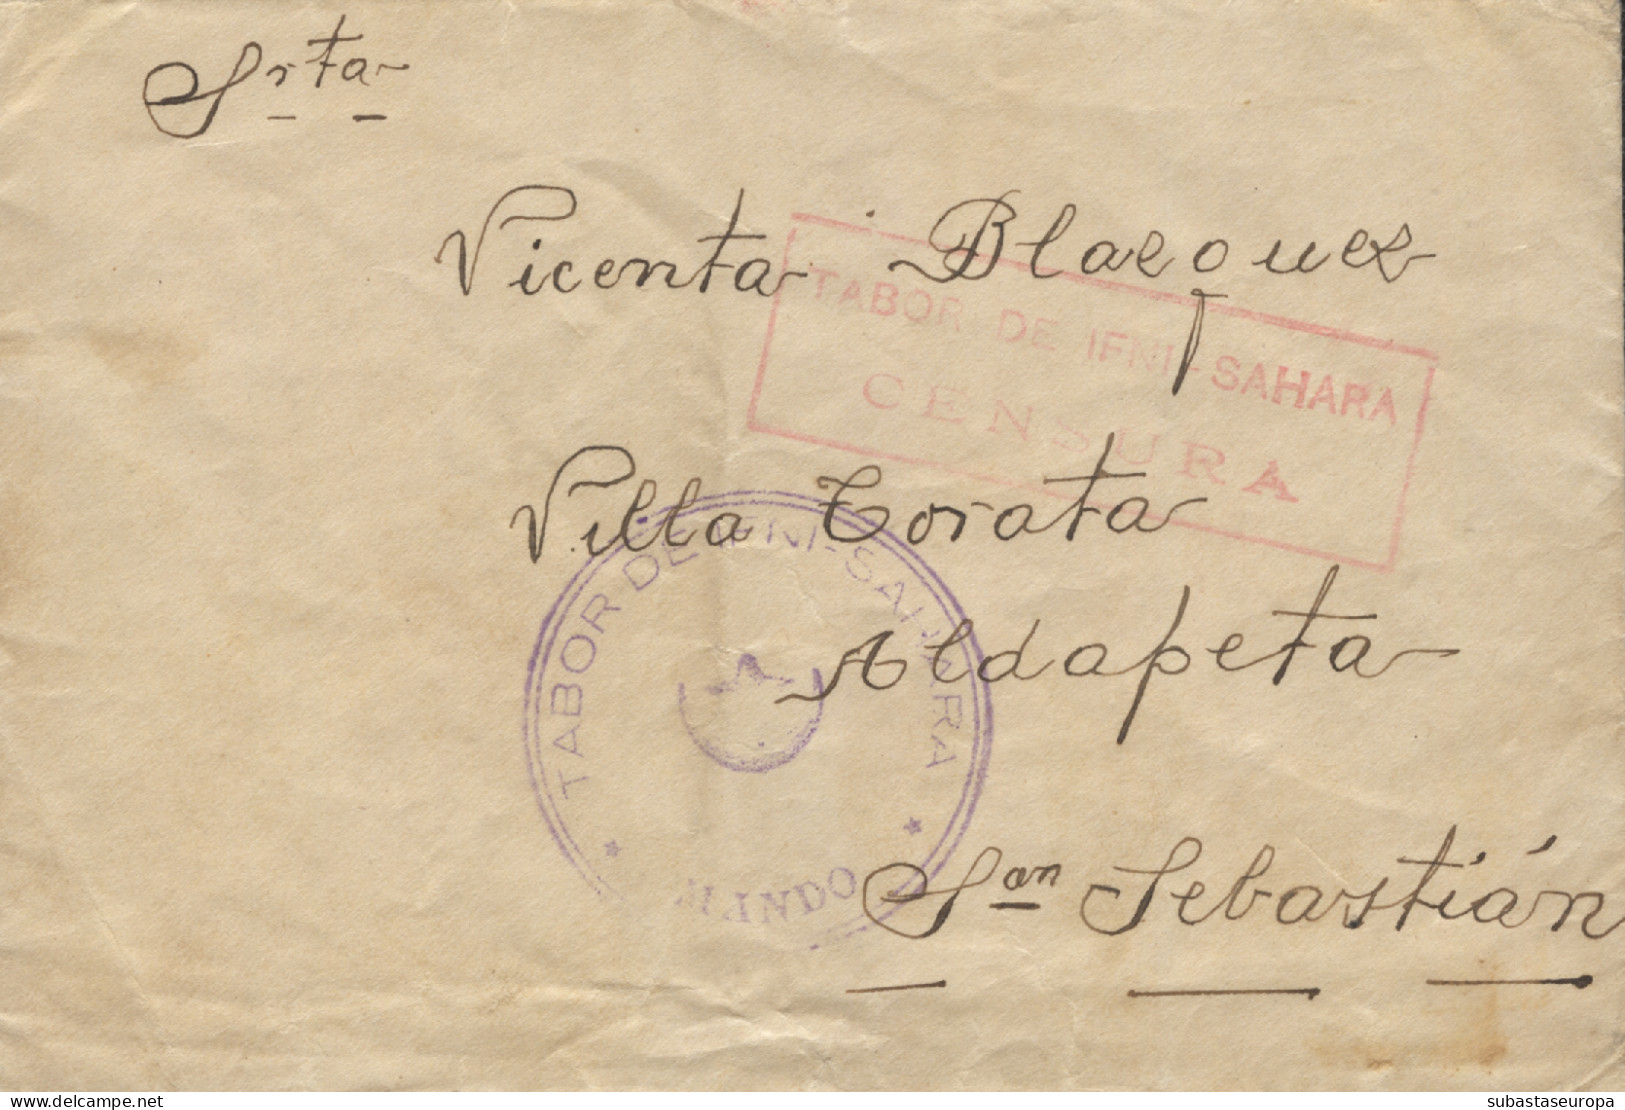 Srta
Vicenta Blazquez
TABOR DE IFNI-SAHARA
CENSURA
Villa Torata
Aldapeta
TABOR DE IFNI-SAHARA
* MANDO *
San Sebastián
www.delcampe.net
subastaseuropa